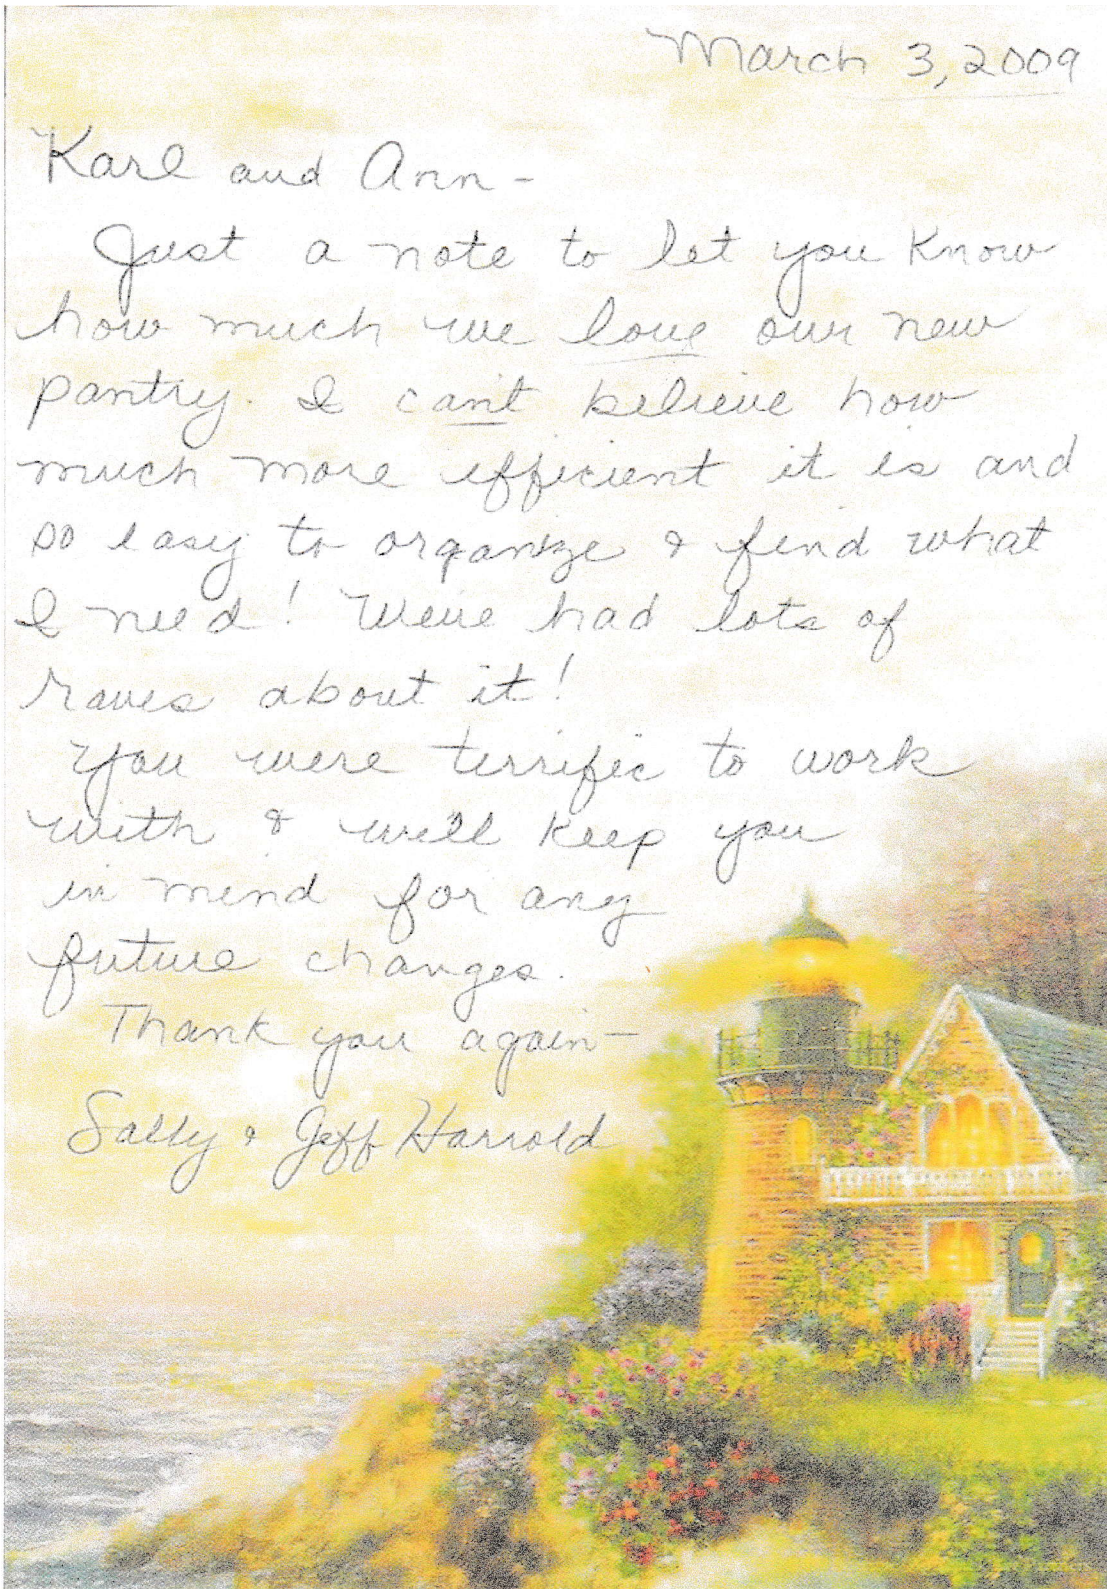 March 3, 2009
Karl and Ann -
Just a note to let you know
how much we love our new
pantry. I can't believe how
much more efficient it is and
so easy to organize & find what
I need! We've had lots of
raves about it!
You were terrific to work
with & we'll keep you
in mind for any
future changes.
Thank you again-
Sally & Jeff Harrold